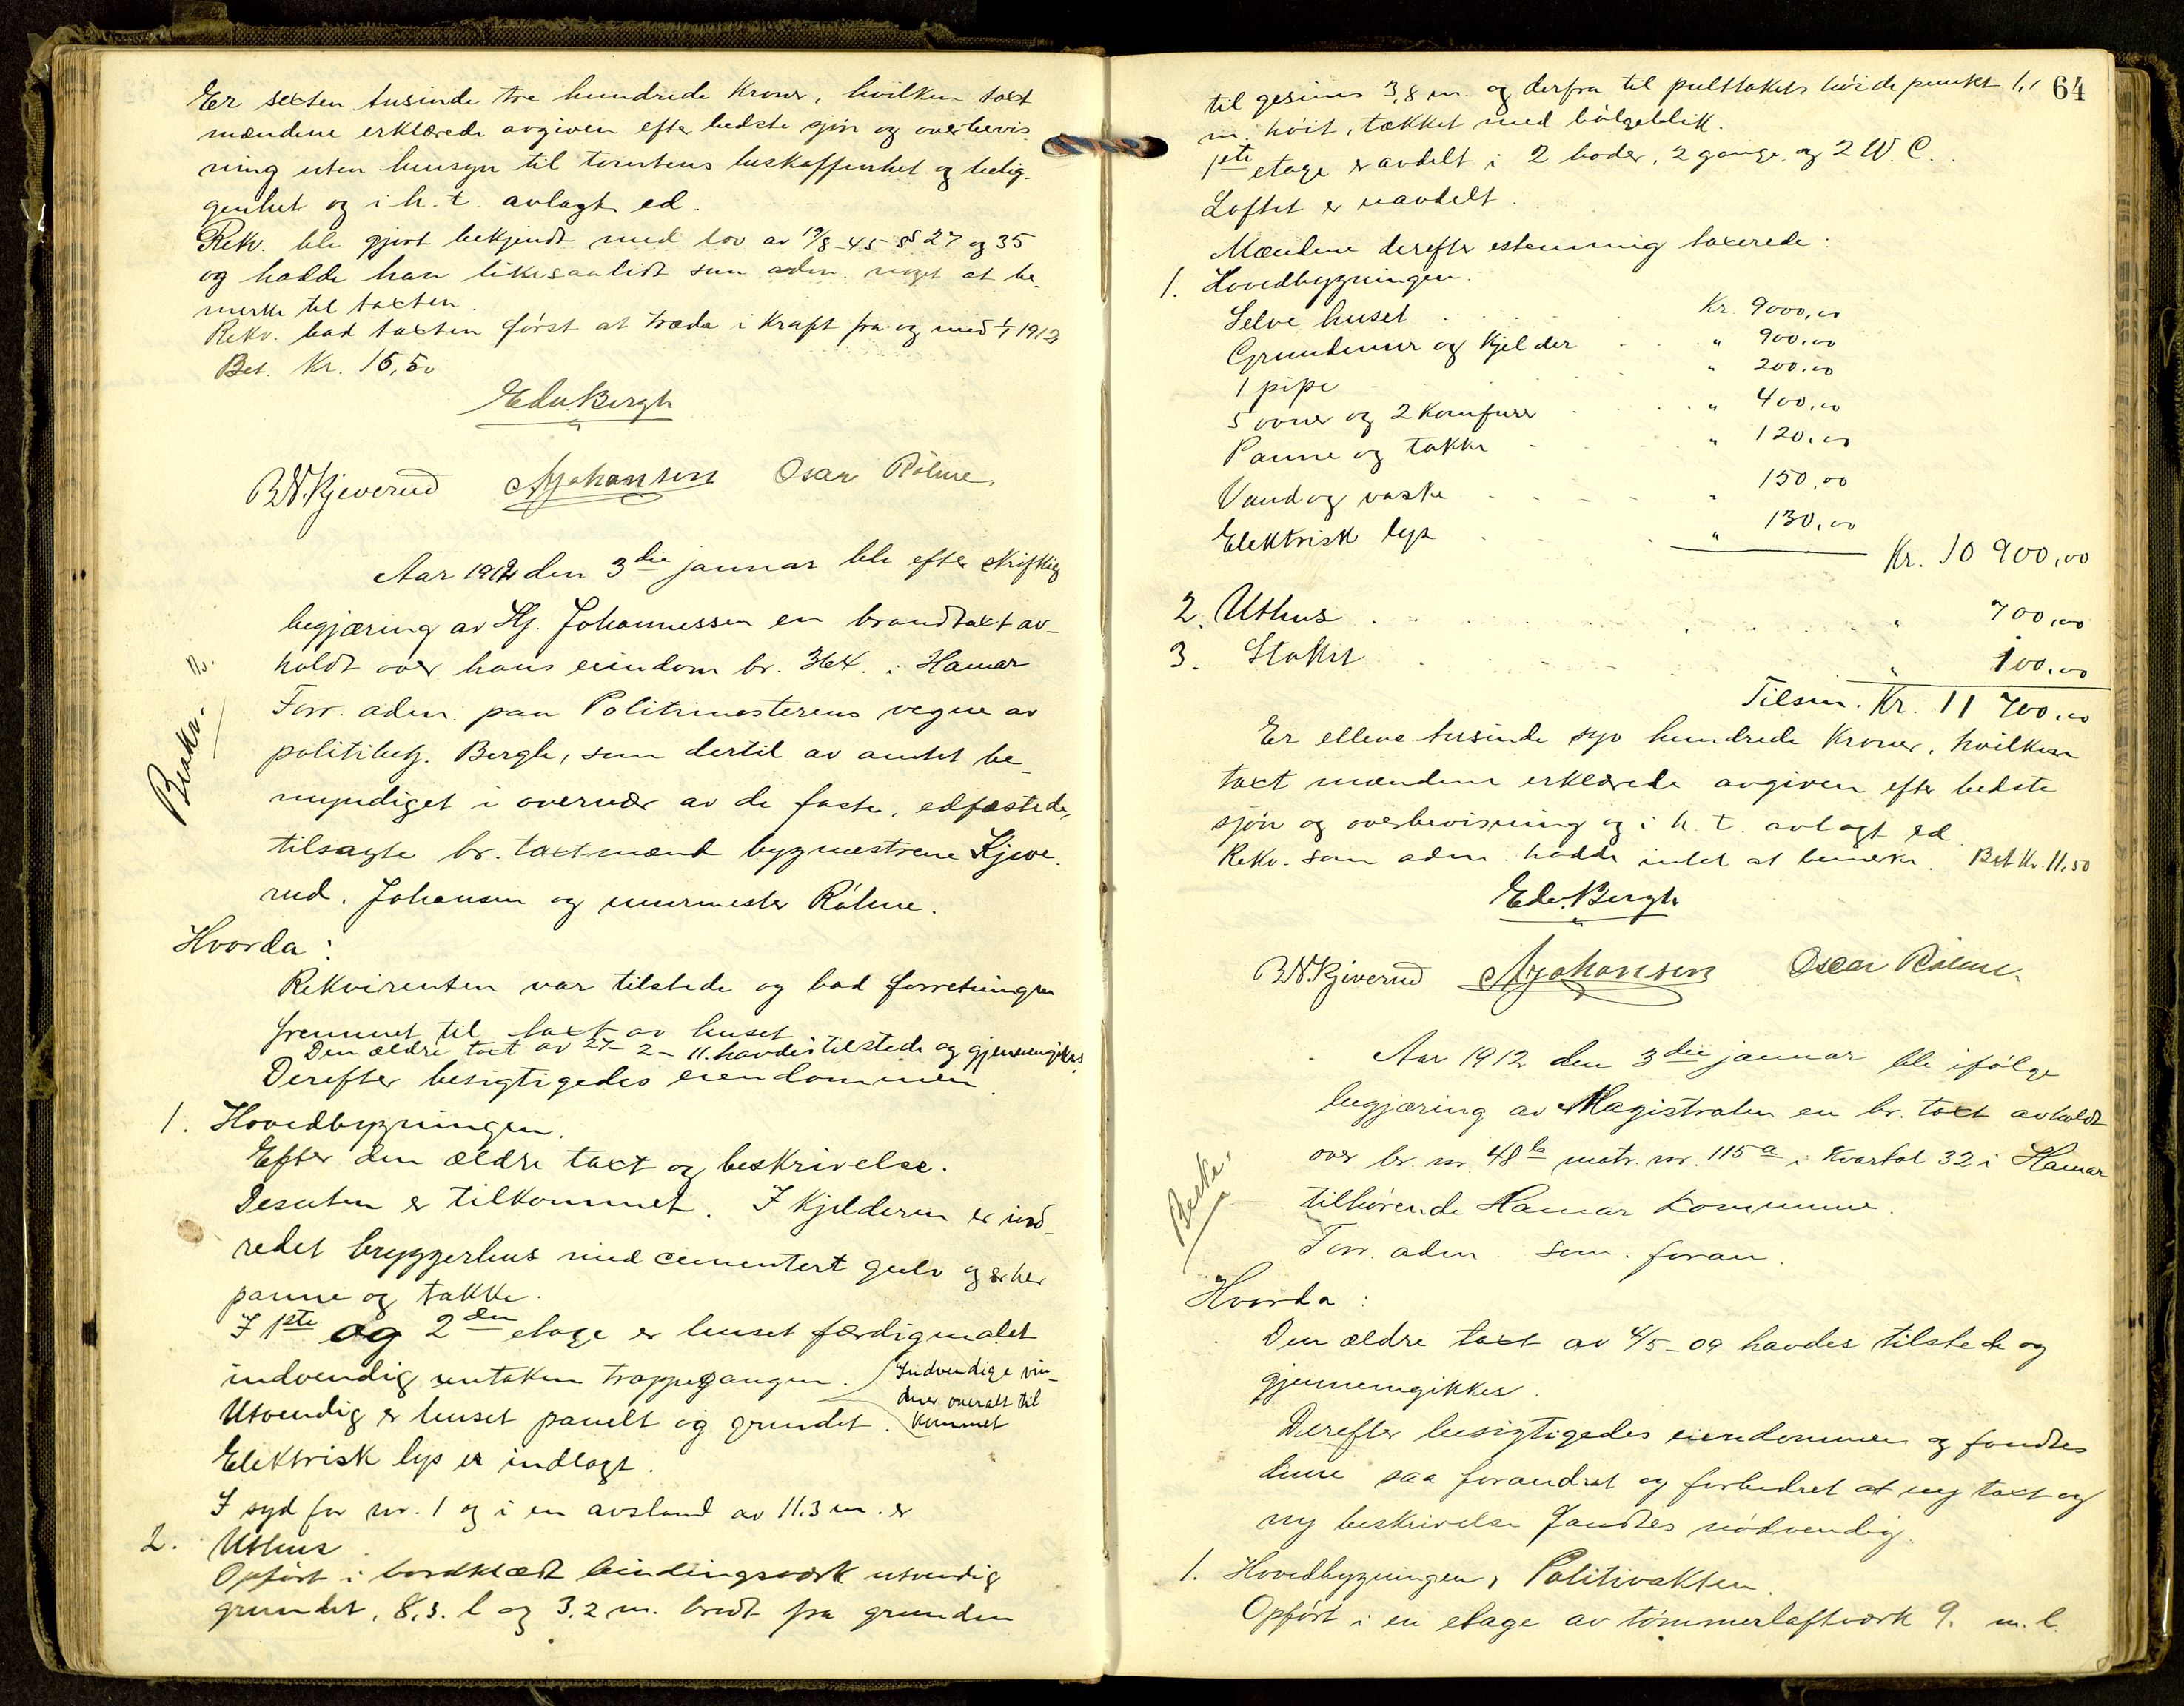 Er sexten tusinde tre hundrede Kroner, hvilken taxt
mændene erklærede avgiven efter bedste sjön og overbevis
ning uten hensyn til tomtens beskaffenhet og belig-
genhet og i h. t. avlagt ed.
Rekv. ble gjort bekjendt med lov av 19/8-45 §§ 27 og 35
og hadde han likesaalidt som adm. noget at be-
merke til taxten.
Rekv. bad taxten först at træde i Kraft fra og med 1/1 1912
Bet. Kr. 15,50
Edv. Bergh
B.N. Kjeverud AJohansen Oscar Rölme
Aar 1912 den 3die januar ble efter skriftlig
Beskr. No.
begjæring av Hj. Johannessen en brandtaxt av-
holdt over hans eiendom br. 364. i Hamar
Forr. adm. paa Politimesterens vegne av
politibetj. Bergh, som dertil av amtet be-
myndiget i overvær av de faste, edfæstede,
tilsagte br. taxtmænd bygmestrene Kjeve-
rud, Johansen og murmester Rölme.
Hvorda:
Rekvirenten var tilstede og bad forretningen
fremmet til taxt av huset
Den ældre taxt av 27-2-11. havdes tilstede og gjennemgikkes.
Derefter besigtigedes eiendommen
1. Hovedbygningen.
Efter den ældre taxt og beskrivelse.
Desuten er tilkommet. I Kjelderen er ind-
redet bryggerhus med cementert gulv og er her
panne og takke.
I 1ste og 2den etage er huset færdigmalet
indvendig untaken trappegangen. Indvendige vin-
duer overalt til
kommet
Utvendig er huset panelt og grundet.
Elektrisk lys er indlagt.
I syd for nr. 1 og i en avstand av 11.3 m. er
2. Uthus.
Opfört i bordklædt bindingsværk utvendig
grundet, 8,3. l og 3,2 m. bredt fra grunden
64
til gesims 3,8 m. og derfra til pulttakets höidepunkt 1,1
m. höit, tækket med bölgeblik.
1ste etage er avdelt i 2 boder, 2 gange, og 2 W. C.
Loftet er uavdelt.
Mændene derefter estemmig taxerede:
1. Hovedbygningen.
Selve huset . . Kr. 9000,00
Grundmur og Kjelder . . . " 900,00
1 pipe " 200,00
5 ovner og 2 Komfurer . . . . " 400,00
Panne og takke . . . " 120,00
Vand og vaske . . . . " 150,00
Elektrisk lys . . . " 130,00
Kr. 10 900,00
2. Uthus . . . . . " 700,00
3. Stakit . . . . . " 100,00
Tilsm. Kr. 11 700,00
Er elleve tusinde syv hundrede Kroner, hvilken
taxt mændene erklærede avgiven efter bedste
sjön og overbevisning og i h. t. avlagt ed
Rekv. som adm. hadde intet at bemerke. Bet Kr. 11,50
Edv. Bergh
B.N. Kjeverud AJohansen Oscar Rölme.
Aar 1912 den 3die januar ble ifölge
begjæring av Magistraten en br. taxt avholdt
Beskr.
over br. nr. 48b matr. nr. 115a i Kvartal 32 i Hamar
tilhörende Hamar Kommune.
Forr. adm. som foran.
Hvorda:
Den ældre taxt av 4/5-09 havdes tilstede og
gjennemgikkes.
Derefter besigtigedes eiendommen og fandtes
denne saa forandret og forbedret at ny taxt og
ny beskrivelse fandtes nödvendig.
1. Hovedbygningen, Politivakten.
Opfört i en etage av tömmerlaftværk 9. m. l.